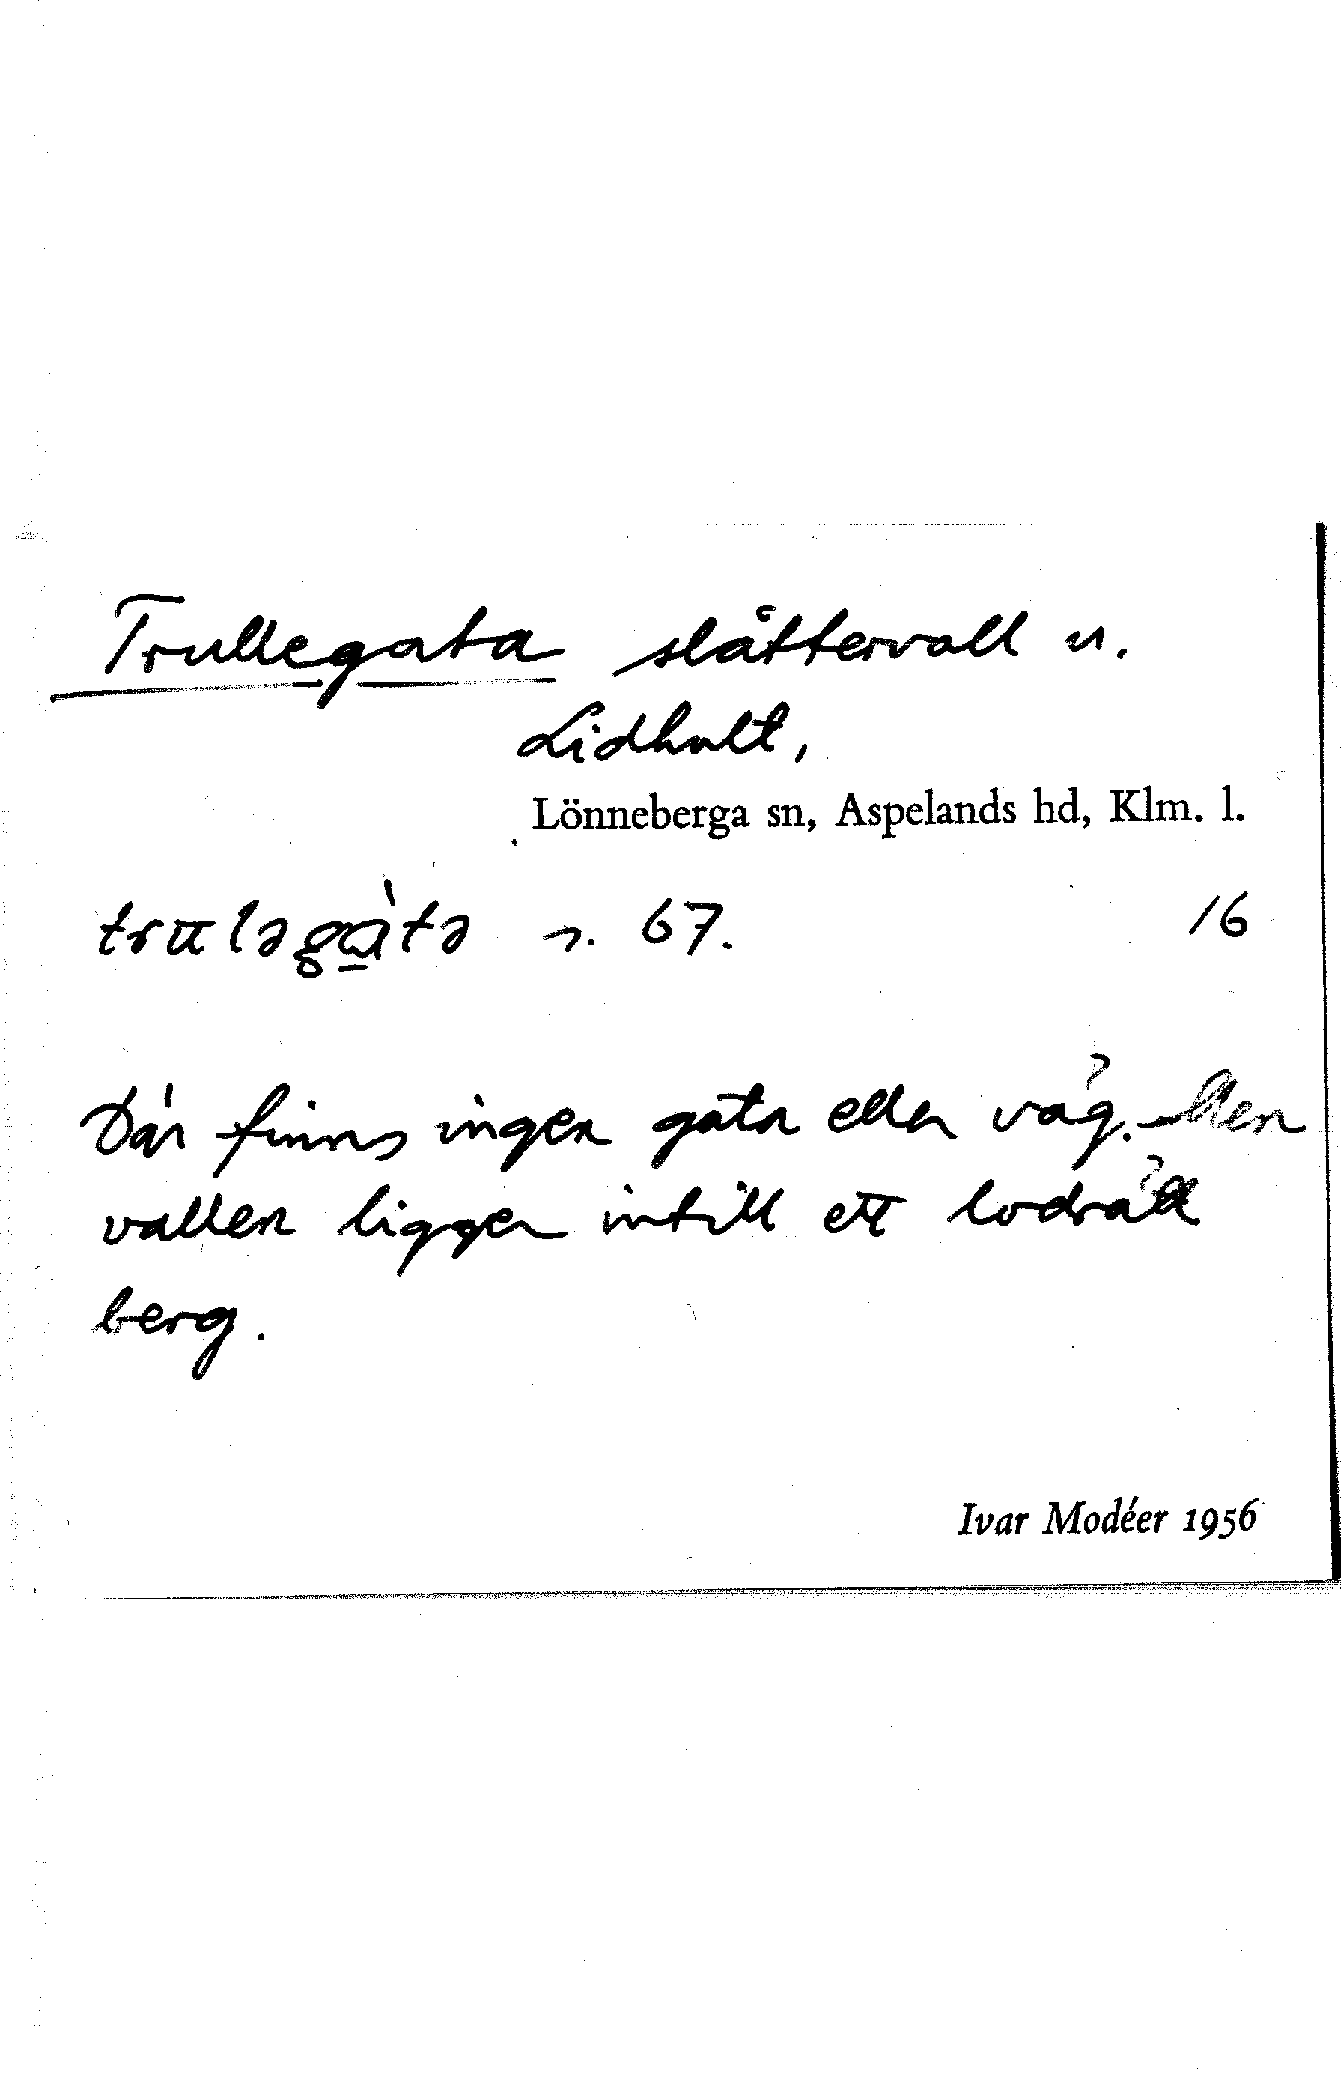 Trullegata slåttervall u.
Lidhult,
Lönneberga sn, Aspelands hd, Klm. l.
truləgàtə n. 67. 16
Där finns ingen gata eller väg. Men
vallen ligger intill ett lodrätt
berg.
Ivar Modéer 1956